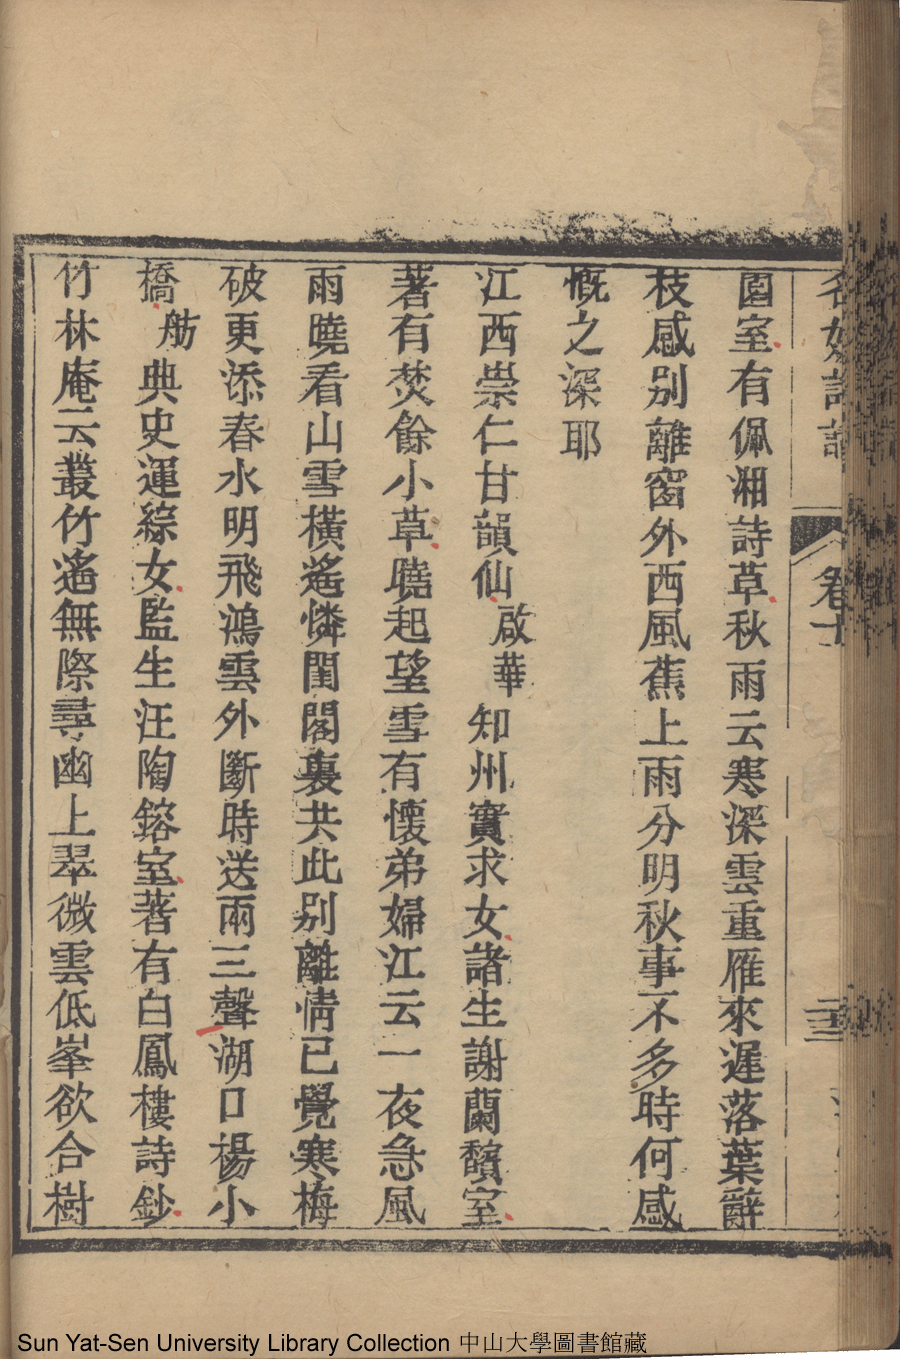 名媛詩話
卷十
園室有佩湘詩草秋雨云寒深雲重雁來遲落葉辭
枝感別離窗外西風蕉上雨分明秋事不多時何感
慨之深耶
江西崇仁甘韻仙啟華知州實求女諸生謝蘭馩室
著有焚餘小草曉起望雪有懷弟婦江云一夜急風
雨曉看山雪橫遙憐閨閣裏共此別離情已覺寒梅
破更添春水明飛鴻雲外斷時送兩三聲湖口楊小
橋舫典史運綜女監生汪陶鎔室著有白鳳樓詩鈔
竹林庵云叢竹遙無際尋幽上翠微雲低峯欲合樹
Sun Yat-Sen University Library Collection 中山大學圖書館藏